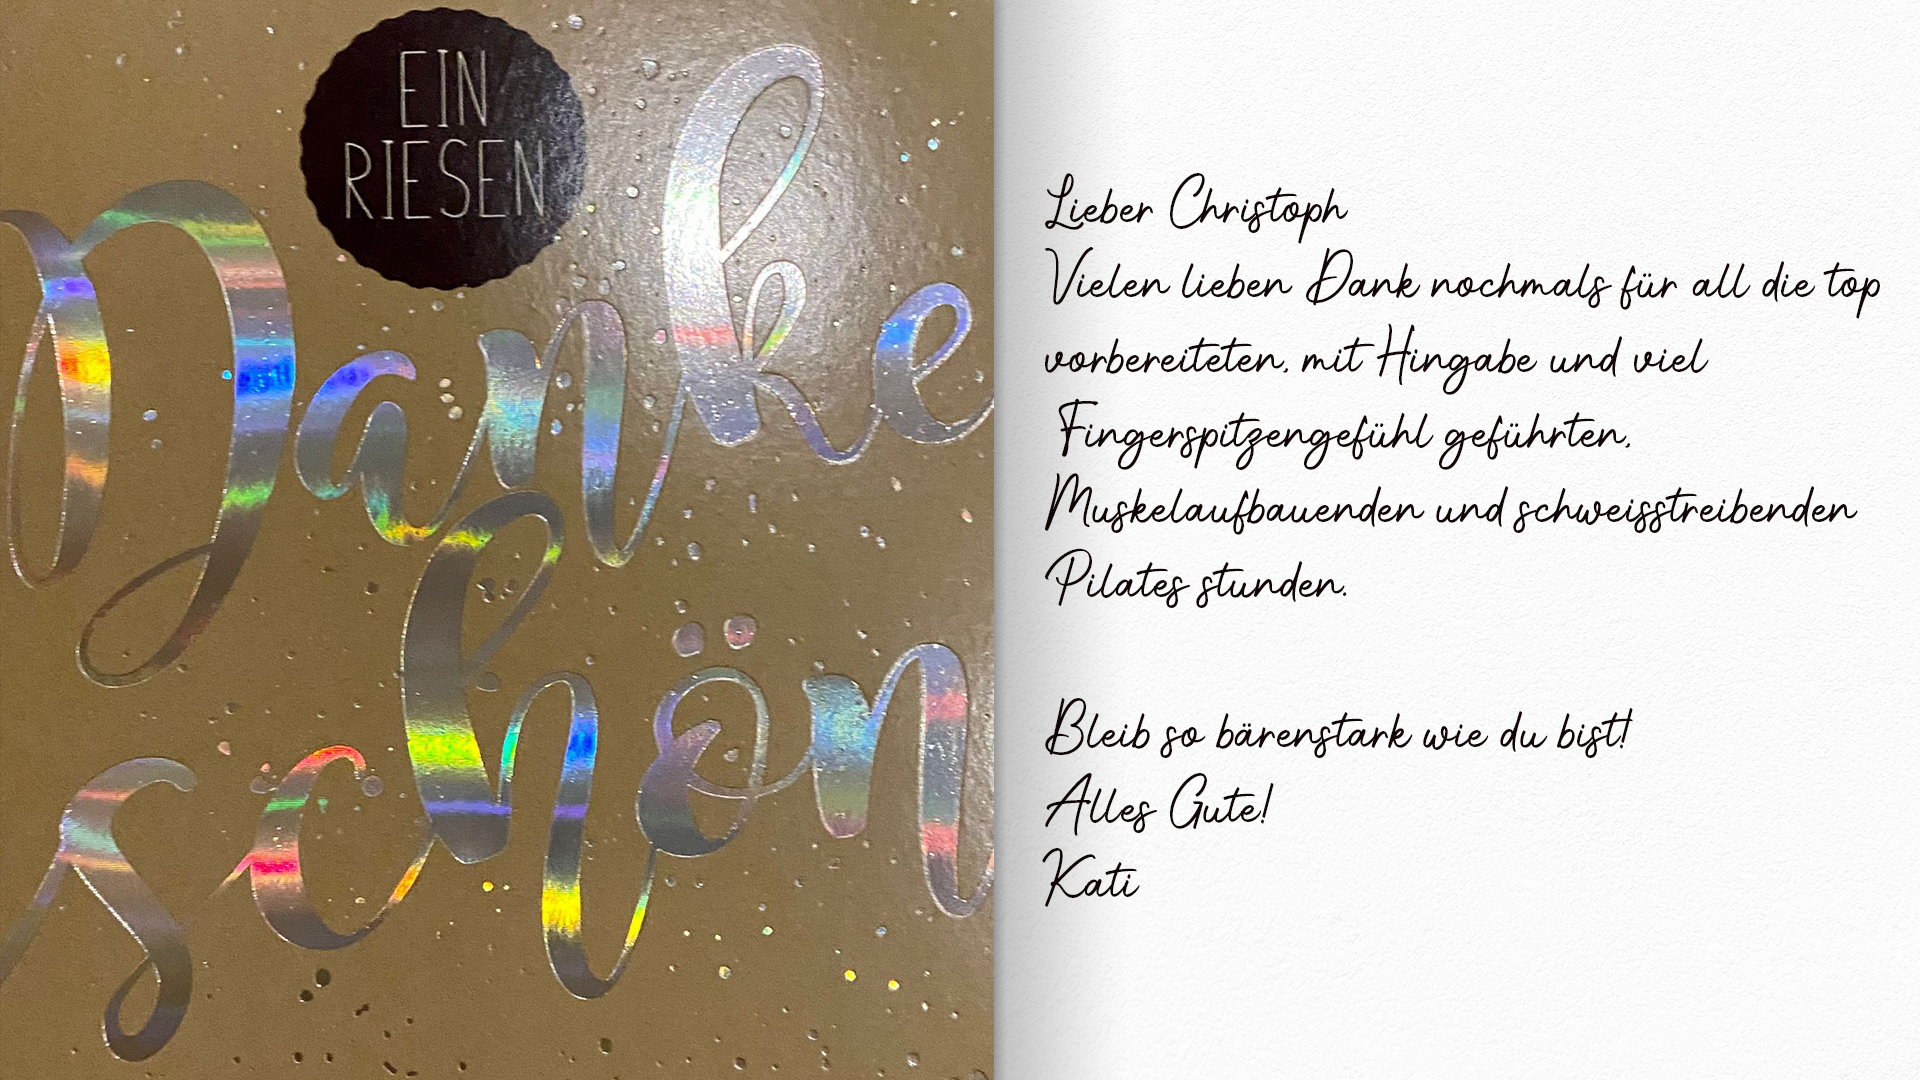 EIN
RIESEN
Danke
schön
Lieber Christoph
Vielen lieben Dank nochmals für all die top
vorbereiteten, mit Hingabe und viel
Fingerspitzengefühl geführten,
Muskelaufbauenden und schweisstreibenden
Pilates stunden.
Bleib so bärenstark wie du bist!
Alles Gute!
Kati